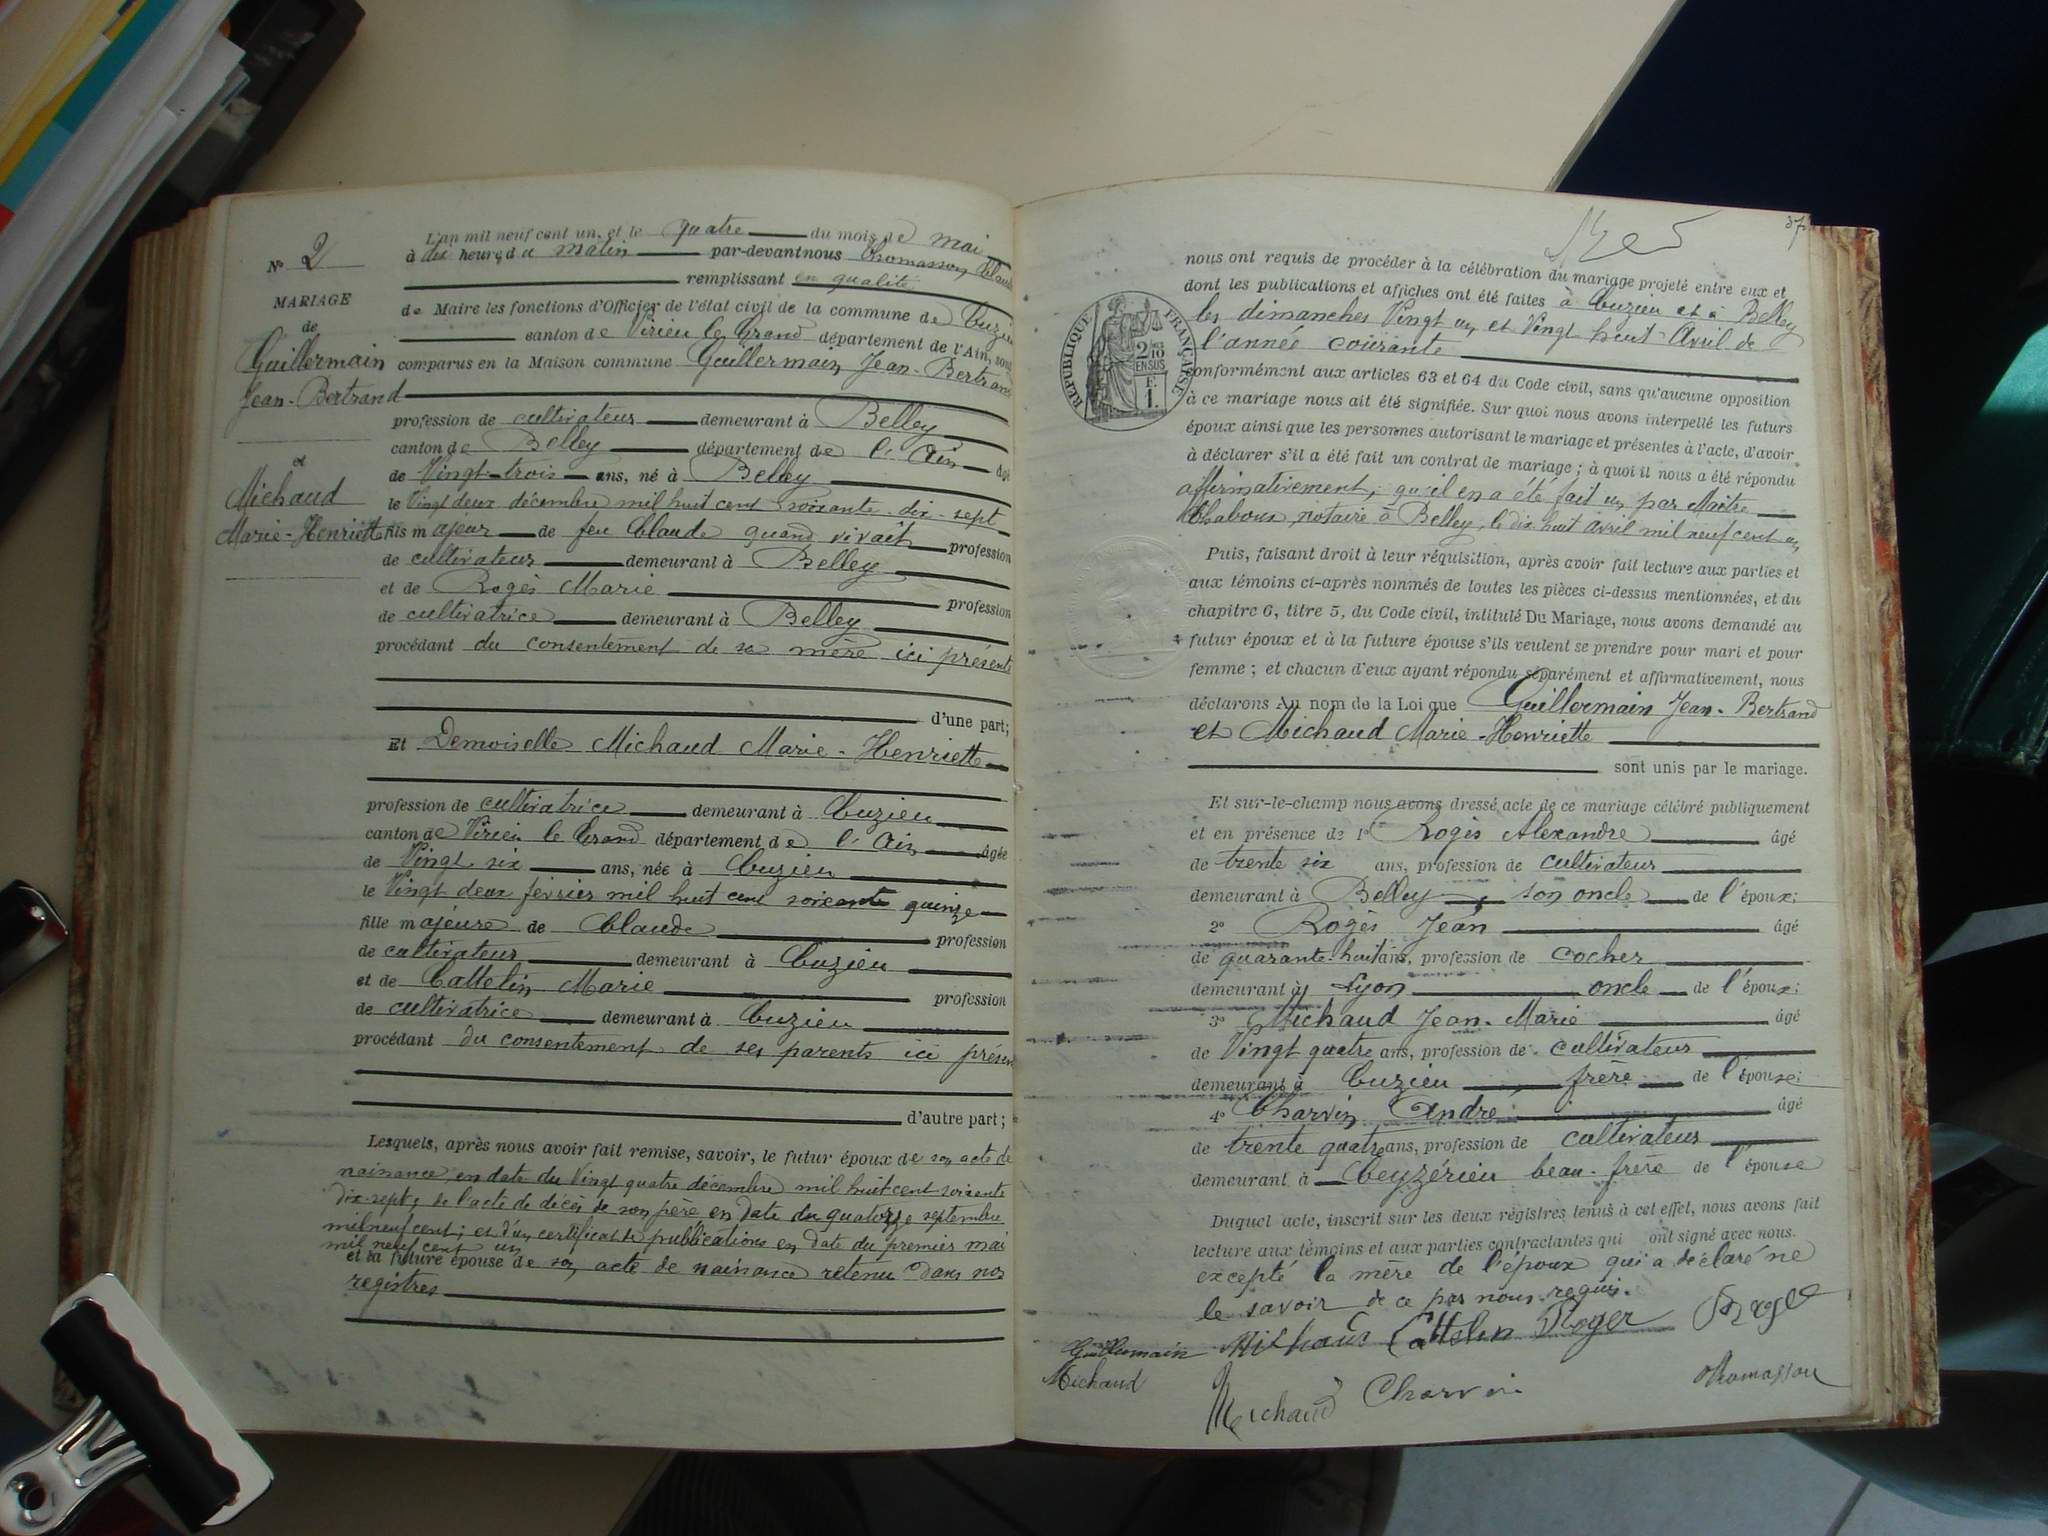 N° 2
MARIAGE
de
Guillermain
Jean-Bertrand
et
Michaud
Marie-Henriette
L'an mil neuf cent un, et le quatre du mois de mai
à dix heures du matin par-devant nous Thomasson Claude
remplissant en qualité
de Maire les fonctions d'Officier de l'état civil de la commune de Cuzieu
canton de Virieu le Grand département de l'Ain, sont
comparus en la Maison commune Guillermain Jean-Bertrand
profession de cultivateur demeurant à Belley
canton de Belley département de l'Ain âgé
de Vingt-trois ans, né à Belley
le Vingt deux décembre mil huit cent soixante-dix-sept
fils majeur de feu Claude quand vivait profession
de cultivateur demeurant à Belley
et de Rogès Marie profession
de cultivatrice demeurant à Belley
procédant du consentement de sa mère ici présente
d'une part;
Et Demoiselle Michaud Marie-Henriette
profession de cultivatrice demeurant à Cuzieu
canton de Virieu le Grand département de l'Ain âgée
de Vingt six ans, née à Cuzieu
le Vingt deux février mil huit cent soixante quinze
fille majeure de Claude profession
de cultivateur demeurant à Cuzieu
et de Cattelin Marie profession
de cultivatrice demeurant à Cuzieu
procédant du consentement de ses parents ici présen
d'autre part;
Lesquels, après nous avoir fait remise, savoir, le futur époux de son acte de
naissance en date du Vingt quatre décembre mil huit cent soixante
dix-sept, de l'acte de décès de son père en date du quatorze septembre
mil neuf cent; et d'un certificat de publications en date du premier mai
mil neuf cent un
et la future épouse de son acte de naissance retenu dans nos
registres
37
nous ont requis de procéder à la célébration du mariage projeté entre eux et
dont les publications et affiches ont été faites à Cuzieu et à Belley
les dimanches Vingt un et Vingt huit Avril de
l'année courante
RÉPUBLIQUE FRANÇAISE
2/10
EN SUS
F.
1.
conformément aux articles 63 et 64 du Code civil, sans qu'aucune opposition
à ce mariage nous ait été signifiée. Sur quoi nous avons interpellé les futurs
époux ainsi que les personnes autorisant le mariage et présentes à l'acte, d'avoir
à déclarer s'il a été fait un contrat de mariage; à quoi il nous a été répondu
affirmativement, qu'il en a été fait un par Maître
Chaboux, notaire à Belley, le dix huit avril mil neuf cent un
Puis, faisant droit à leur réquisition, après avoir fait lecture aux parties et
aux témoins ci-après nommés de toutes les pièces ci-dessus mentionnées, et du
chapitre 6, titre 5, du Code civil, intitulé Du Mariage, nous avons demandé au
futur époux et à la future épouse s'ils veulent se prendre pour mari et pour
femme; et chacun d'eux ayant répondu séparément et affirmativement, nous
déclarons Au nom de la Loi que Guillermain Jean-Bertrand
et Michaud Marie-Henriette
sont unis par le mariage.
Et sur-le-champ nous avons dressé acte de ce mariage célébré publiquement
et en présence de 1° Rogès Alexandre âgé
de trente six ans, profession de cultivateur
demeurant à Belley, son oncle de l'époux;
2° Rogès Jean âgé
de quarante-huit ans, profession de cocher
demeurant à Lyon oncle de l'époux;
3° Michaud Jean-Marie âgé
de Vingt quatre ans, profession de cultivateur
demeurant à Cuzieu frère de l'épouse;
4° Charvin André âgé
de trente quatre ans, profession de cultivateur
demeurant à Ceyzérieu beau-frère de l'épouse
Duquel acte, inscrit sur les deux registres tenus à cet effet, nous avons fait
lecture aux témoins et aux parties contractantes qui ont signé avec nous.
excepté la mère de l'époux qui a déclaré ne
le savoir de ce par nous requis.
Guillermain Michaud Cattelin Roger
Michaud
Michaud Charvin Thomasson